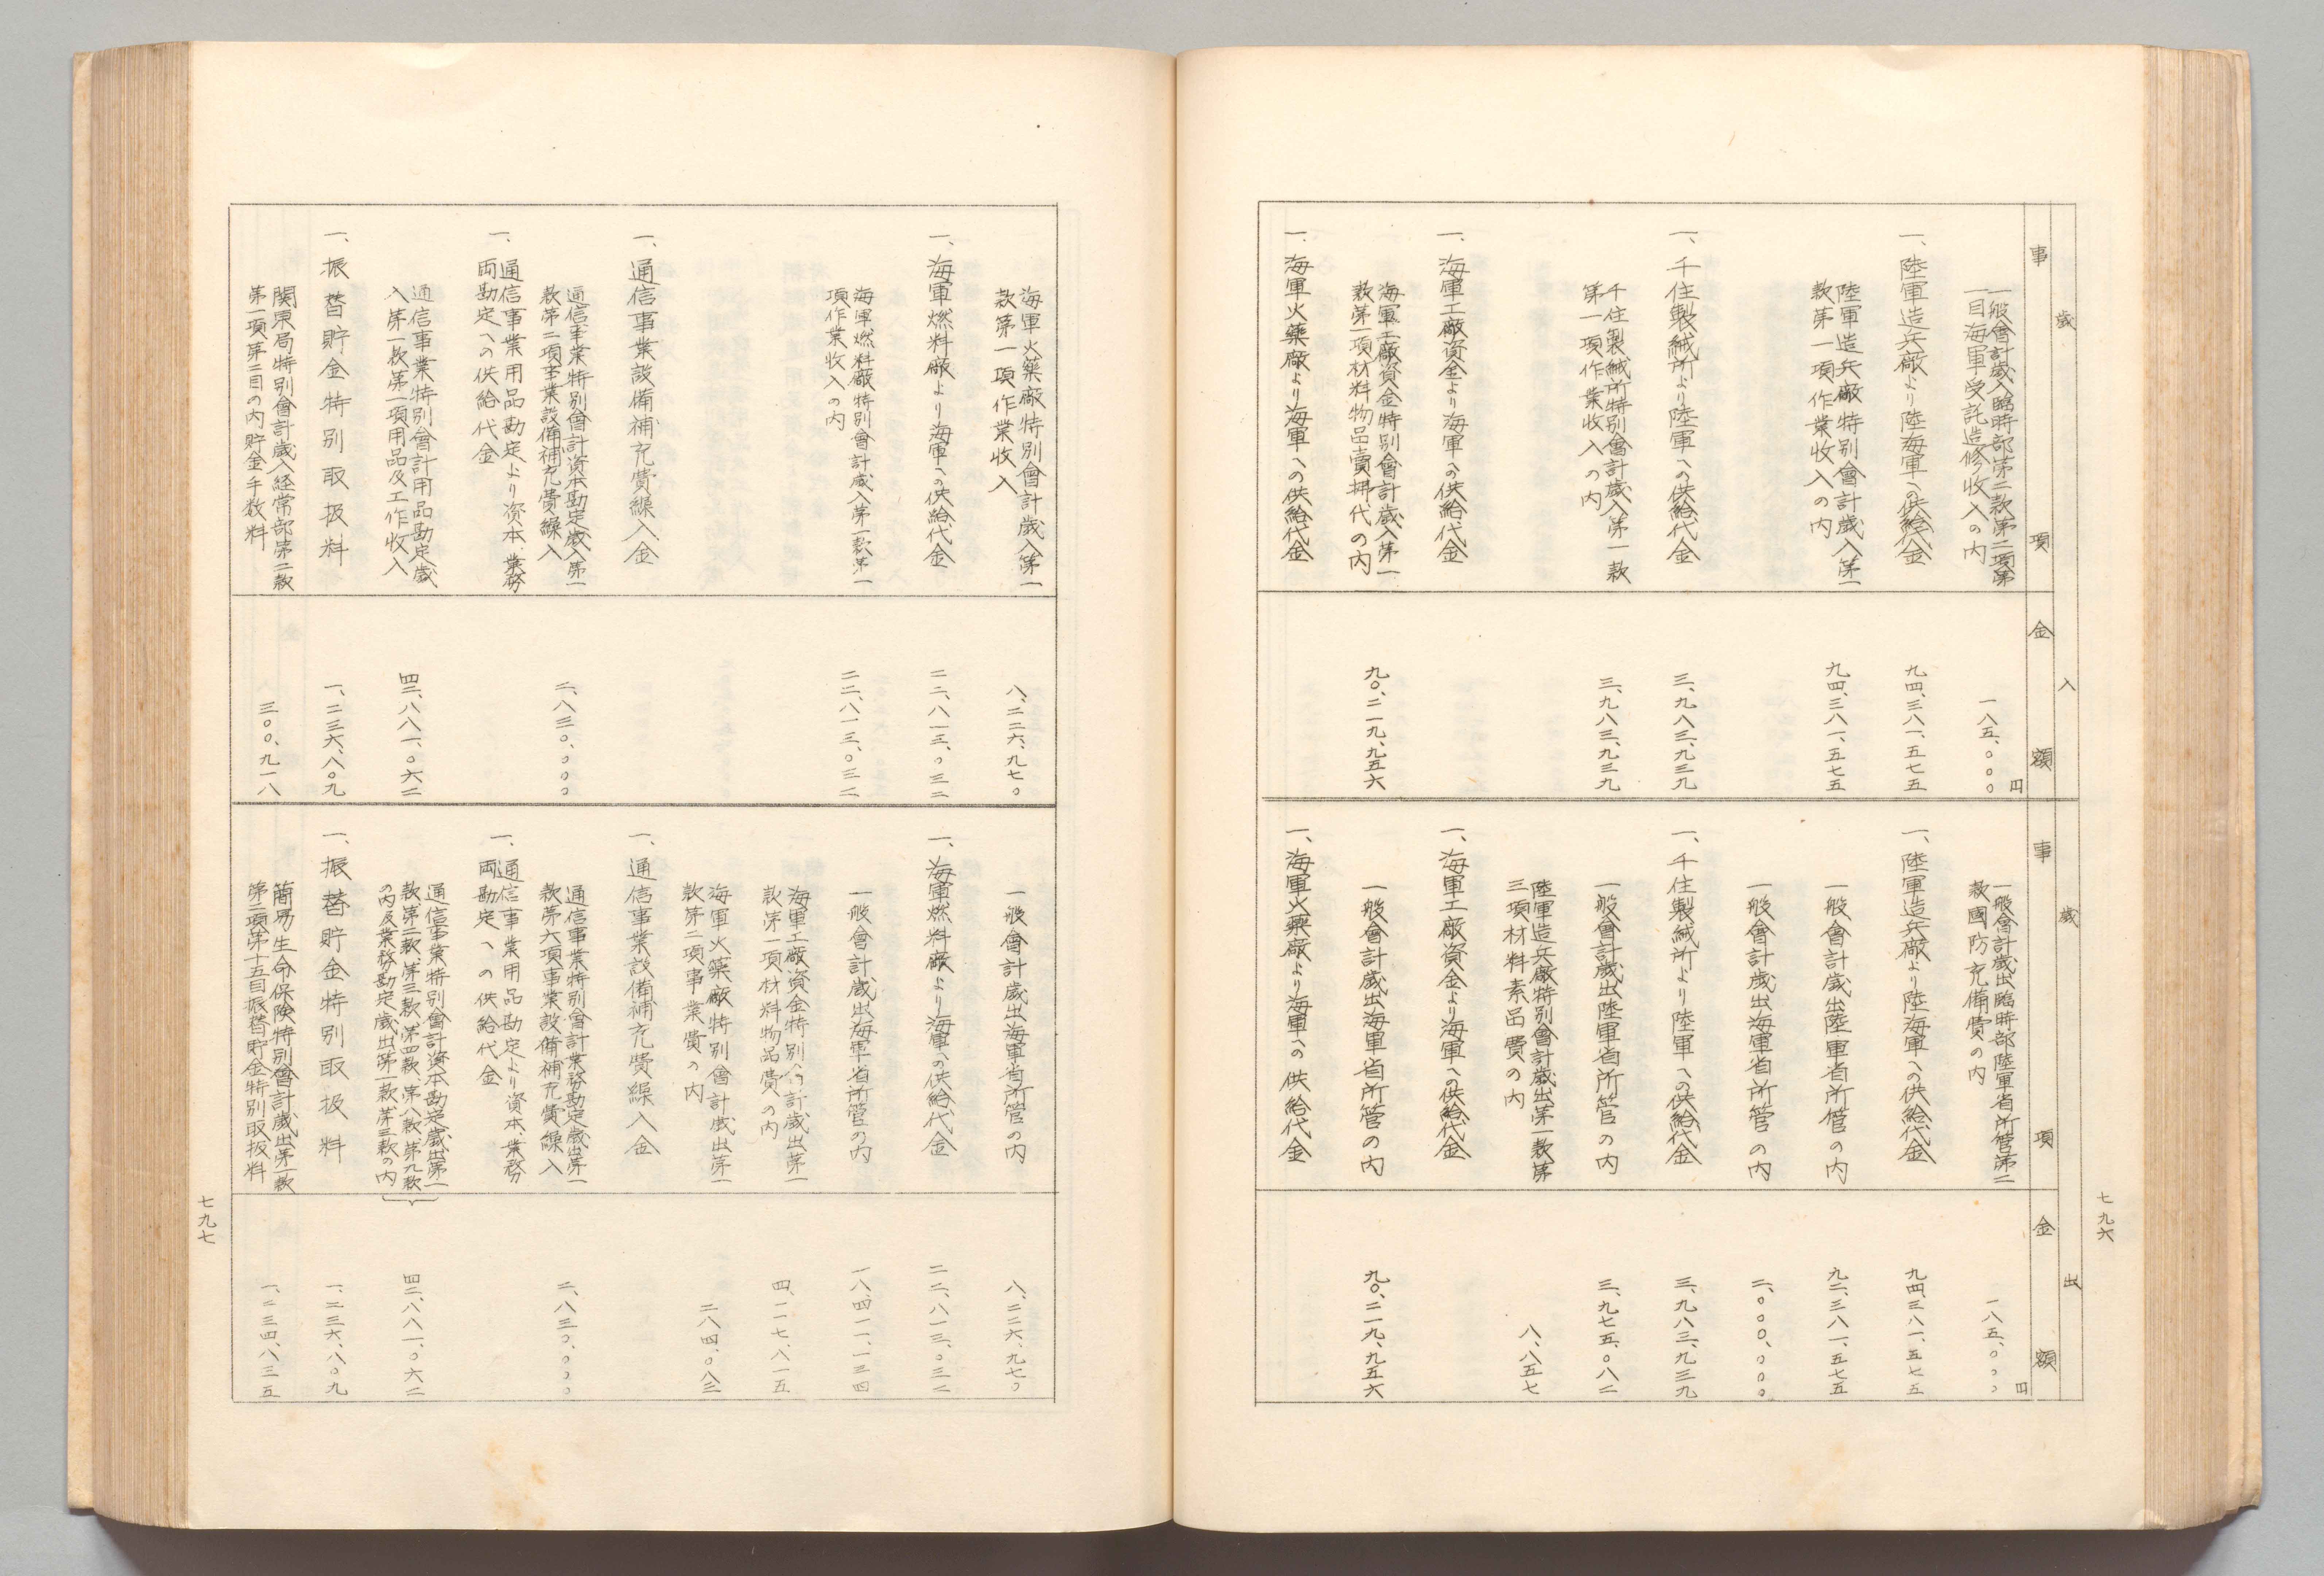 七九六
歳入
歳出
事項
金額
事項
金額
一般會計歳入臨時部第二款第二項第
一目海軍受託造修收入の内
一八五、〇〇〇円
一、陸軍造兵廠より陸海軍への供給代金
九四、三八一、五七五
陸軍造兵廠特別會計歳入第一
款第一項作業收入の内
九四、三八一、五七五
一、千住製絨所より陸軍への供給代金
三、九八三、九三九
千住製絨所特別會計歳入第一款
第一項作業收入の内
三、九八三、九三九
一、海軍工廠資金より海軍への供給代金
海軍工廠資金特別會計歳入第一
款第一項材料物品賣拂代の内
九〇、二一九、九五六
一、海軍火藥廠より海軍への供給代金
一般會計歳出臨時部陸軍省所管第二
款國防充備費の内
一八五、〇〇〇円
一、陸軍造兵廠より陸海軍への供給代金
九四、三八一、五七五
一般會計歳出陸軍省所管の内
九二、三八一、五七五
一般會計歳出海軍省所管の内
二、〇〇〇、〇〇〇
一、千住製絨所より陸軍への供給代金
三、九八三、九三九
一般會計歳出陸軍省所管の内
三、九七五、〇八二
陸軍造兵廠特別會計歳出第一款第
三項材料素品費の内
八、八五七
一、海軍工廠資金より海軍への供給代金
一般會計歳出海軍省所管の内
九〇、二一九、九五六
一、海軍火藥廠より海軍への供給代金
海軍火藥廠特別會計歳入第一
款第一項作業收入
八、二二六、九七〇
一、海軍燃料廠より海軍への供給代金
二二、八一三、〇三二
海軍燃料廠特別會計歳入第一款第一
項作業收入の内
二二、八一三、〇三二
一、通信事業設備補充費繰入金
通信事業特別會計資本勘定歳入第一
款第二項事業設備補充費繰入
二、八三〇、〇〇〇
一、通信事業用品勘定より資本、業務
両勘定への供給代金
通信事業特別會計用品勘定歳
入第一款第一項用品及工作收入
四二、八八一、〇六二
一、振替貯金特別取扱料
一、二三六、八〇九
関東局特別會計歳入経常部第二款
第一項第二目の内貯金手数料
三〇〇、九一八
一般會計歳出海軍省所管の内
八、二二六、九七〇
一、海軍燃料廠より海軍への供給代金
二二、八一三、〇三二
一般會計歳出海軍省所管の内
一八、四一一、一三四
海軍工廠資金特別會計歳出第一
款第一項材料物品費の内
四、一一七、八一五
海軍火藥廠特別會計歳出第一
款第二項事業費の内
二八四、〇八三
一、通信事業設備補充費繰入金
通信事業特別會計業務勘定歳出第一
款第六項事業設備補充費繰入
二、八三〇、〇〇〇
一、通信事業用品勘定より資本、業務
両勘定への供給代金
通信事業特別會計資本勘定歳出第一
款第二款、第三款、第四款、第八款、第九款
の内及業務勘定歳出第一款第三款の内
四二、八八一、〇六二
一、振替貯金特別取扱料
一、二三六、八〇九
簡易生命保険特別會計歳出第一款
第二項第十五目振替貯金特別取扱料
一、二三四、八三五
七九七